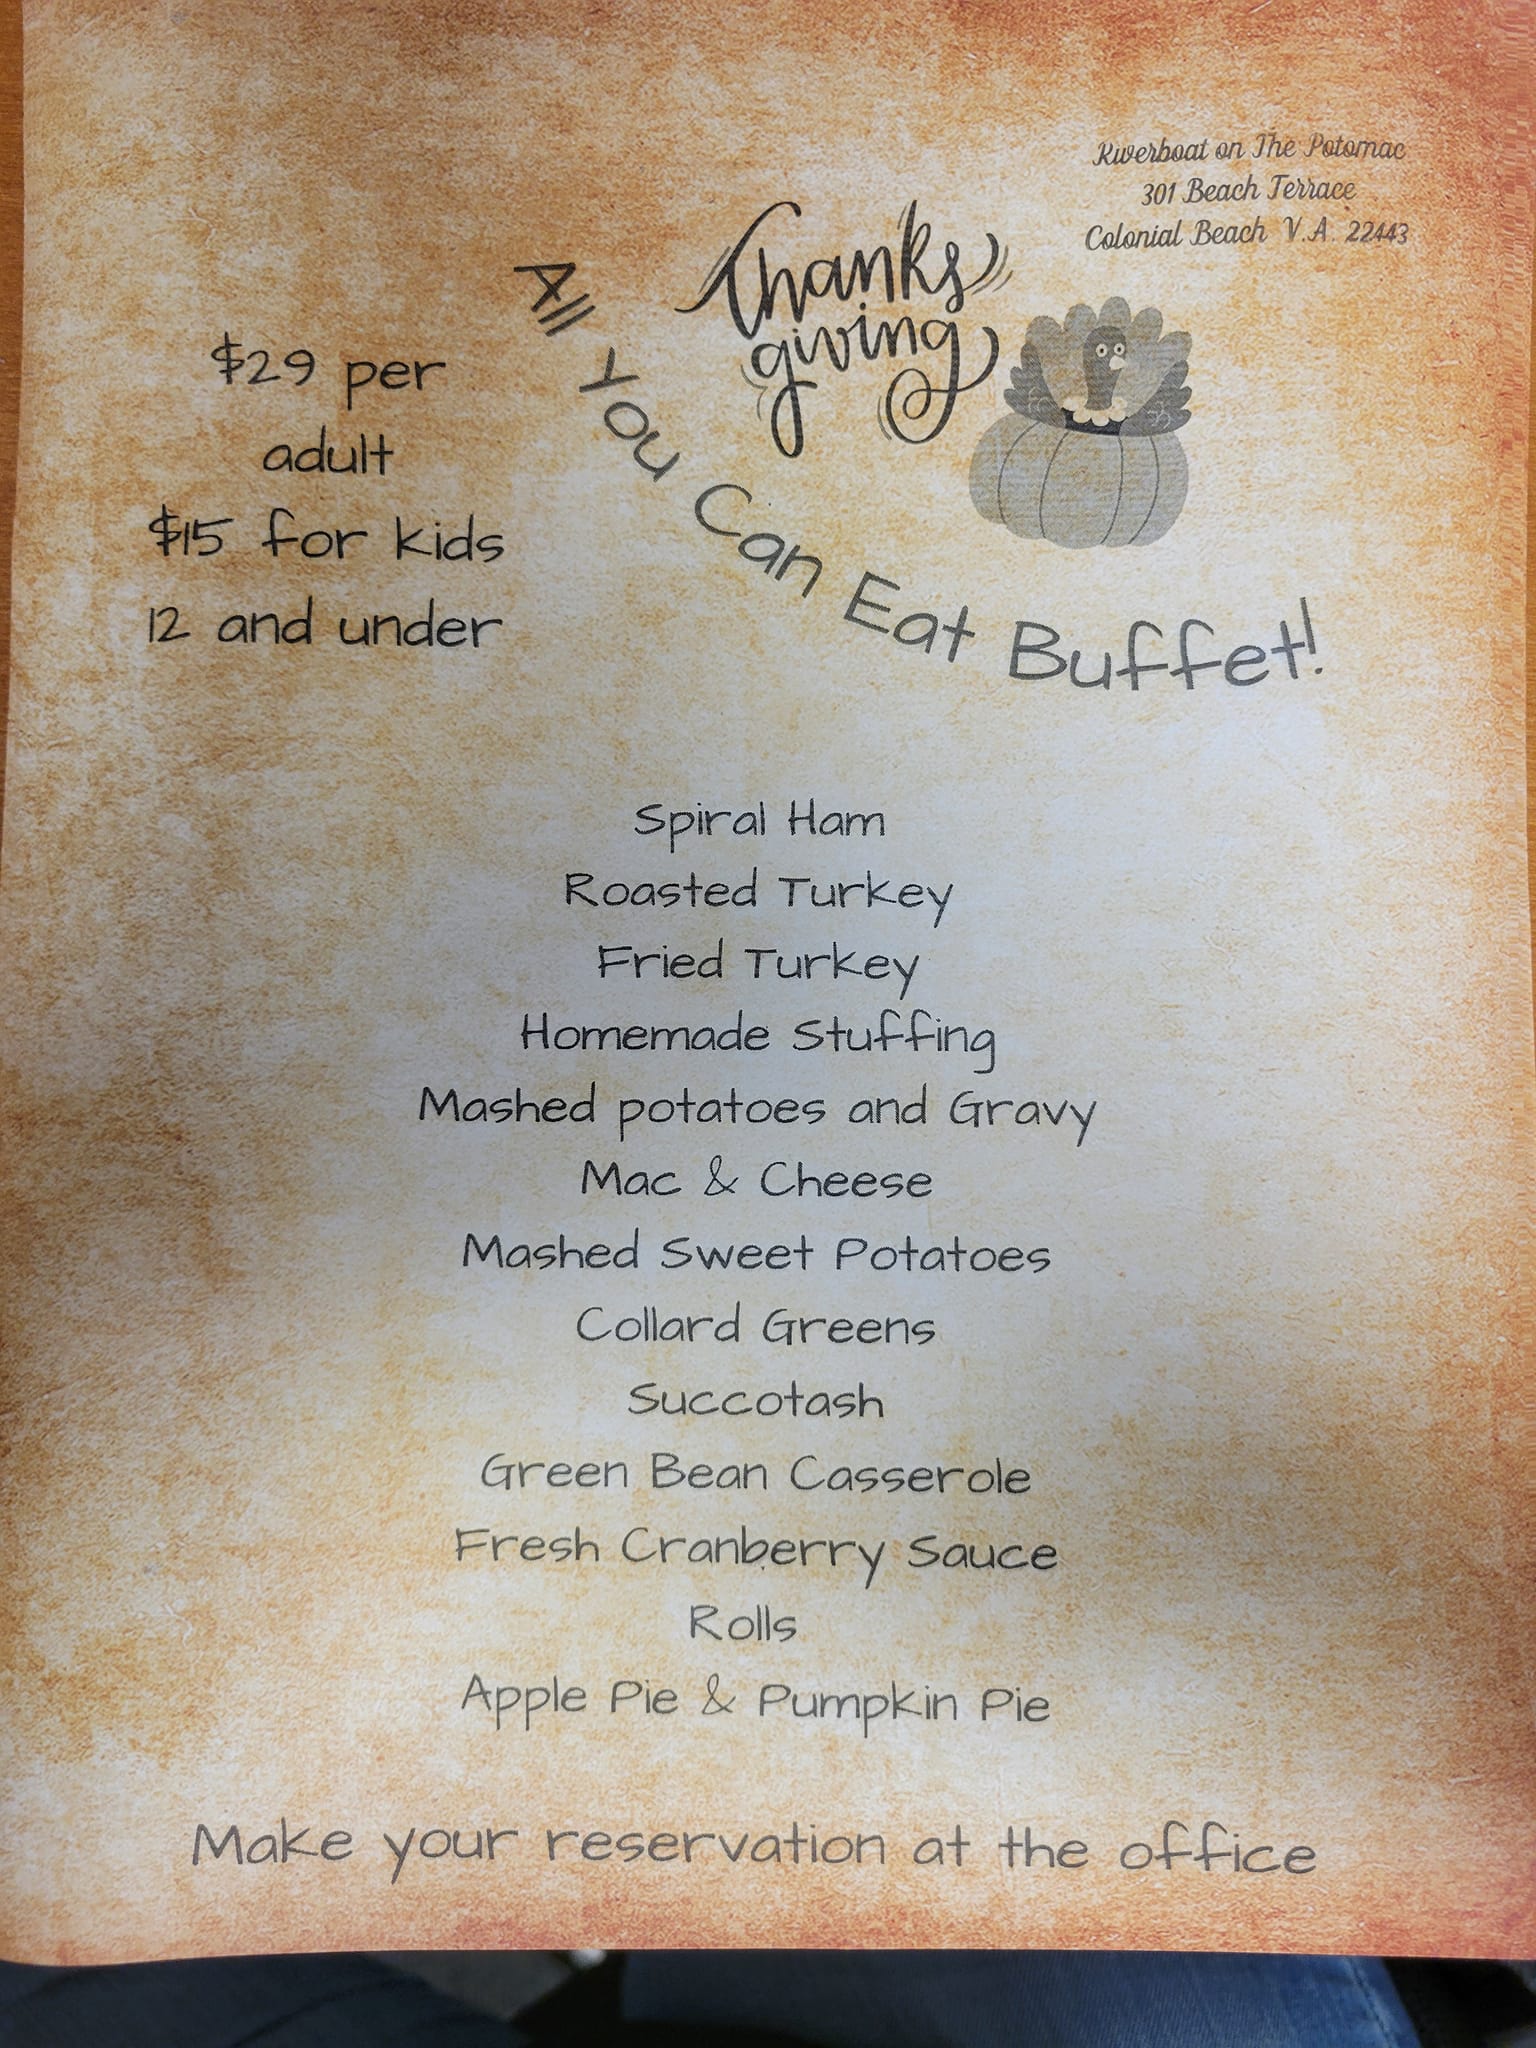 Riverboat on The Potomac
301 Beach Terrace
Colonial Beach V.A. 22443
Thanks
giving
All You Can Eat Buffet!
$29 per
adult
$15 for kids
12 and under
Spiral Ham
Roasted Turkey
Fried Turkey
Homemade Stuffing
Mashed potatoes and Gravy
Mac & Cheese
Mashed Sweet Potatoes
Collard Greens
Succotash
Green Bean Casserole
Fresh Cranberry Sauce
Rolls
Apple Pie & Pumpkin Pie
Make your reservation at the office